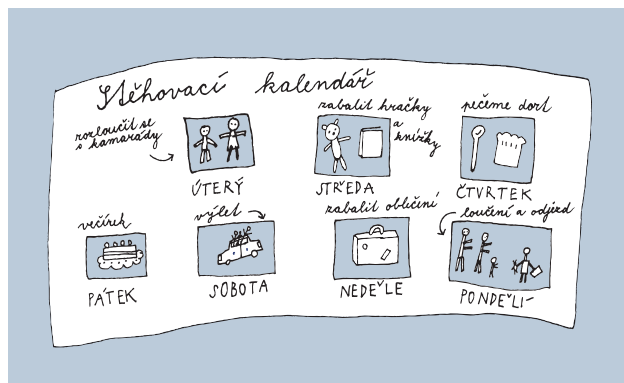 Stěhovací kalendář
rozloučit se
s kamarády
ÚTERÝ
zabalit hračky
a
knížky
STŘEDA
pečeme dort
ČTVRTEK
večírek
PÁTEK
výlet
SOBOTA
zabalit oblečení
NEDĚLE
loučení a odjezd
PONDĚLÍ